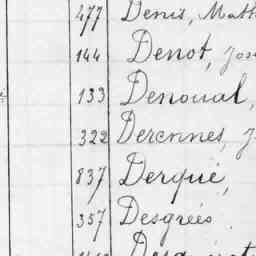 477 Denis, Math
144 Denot, Jos
133 Denoual,
322 Derennes, J
837 Derqué,
357 Desgrées